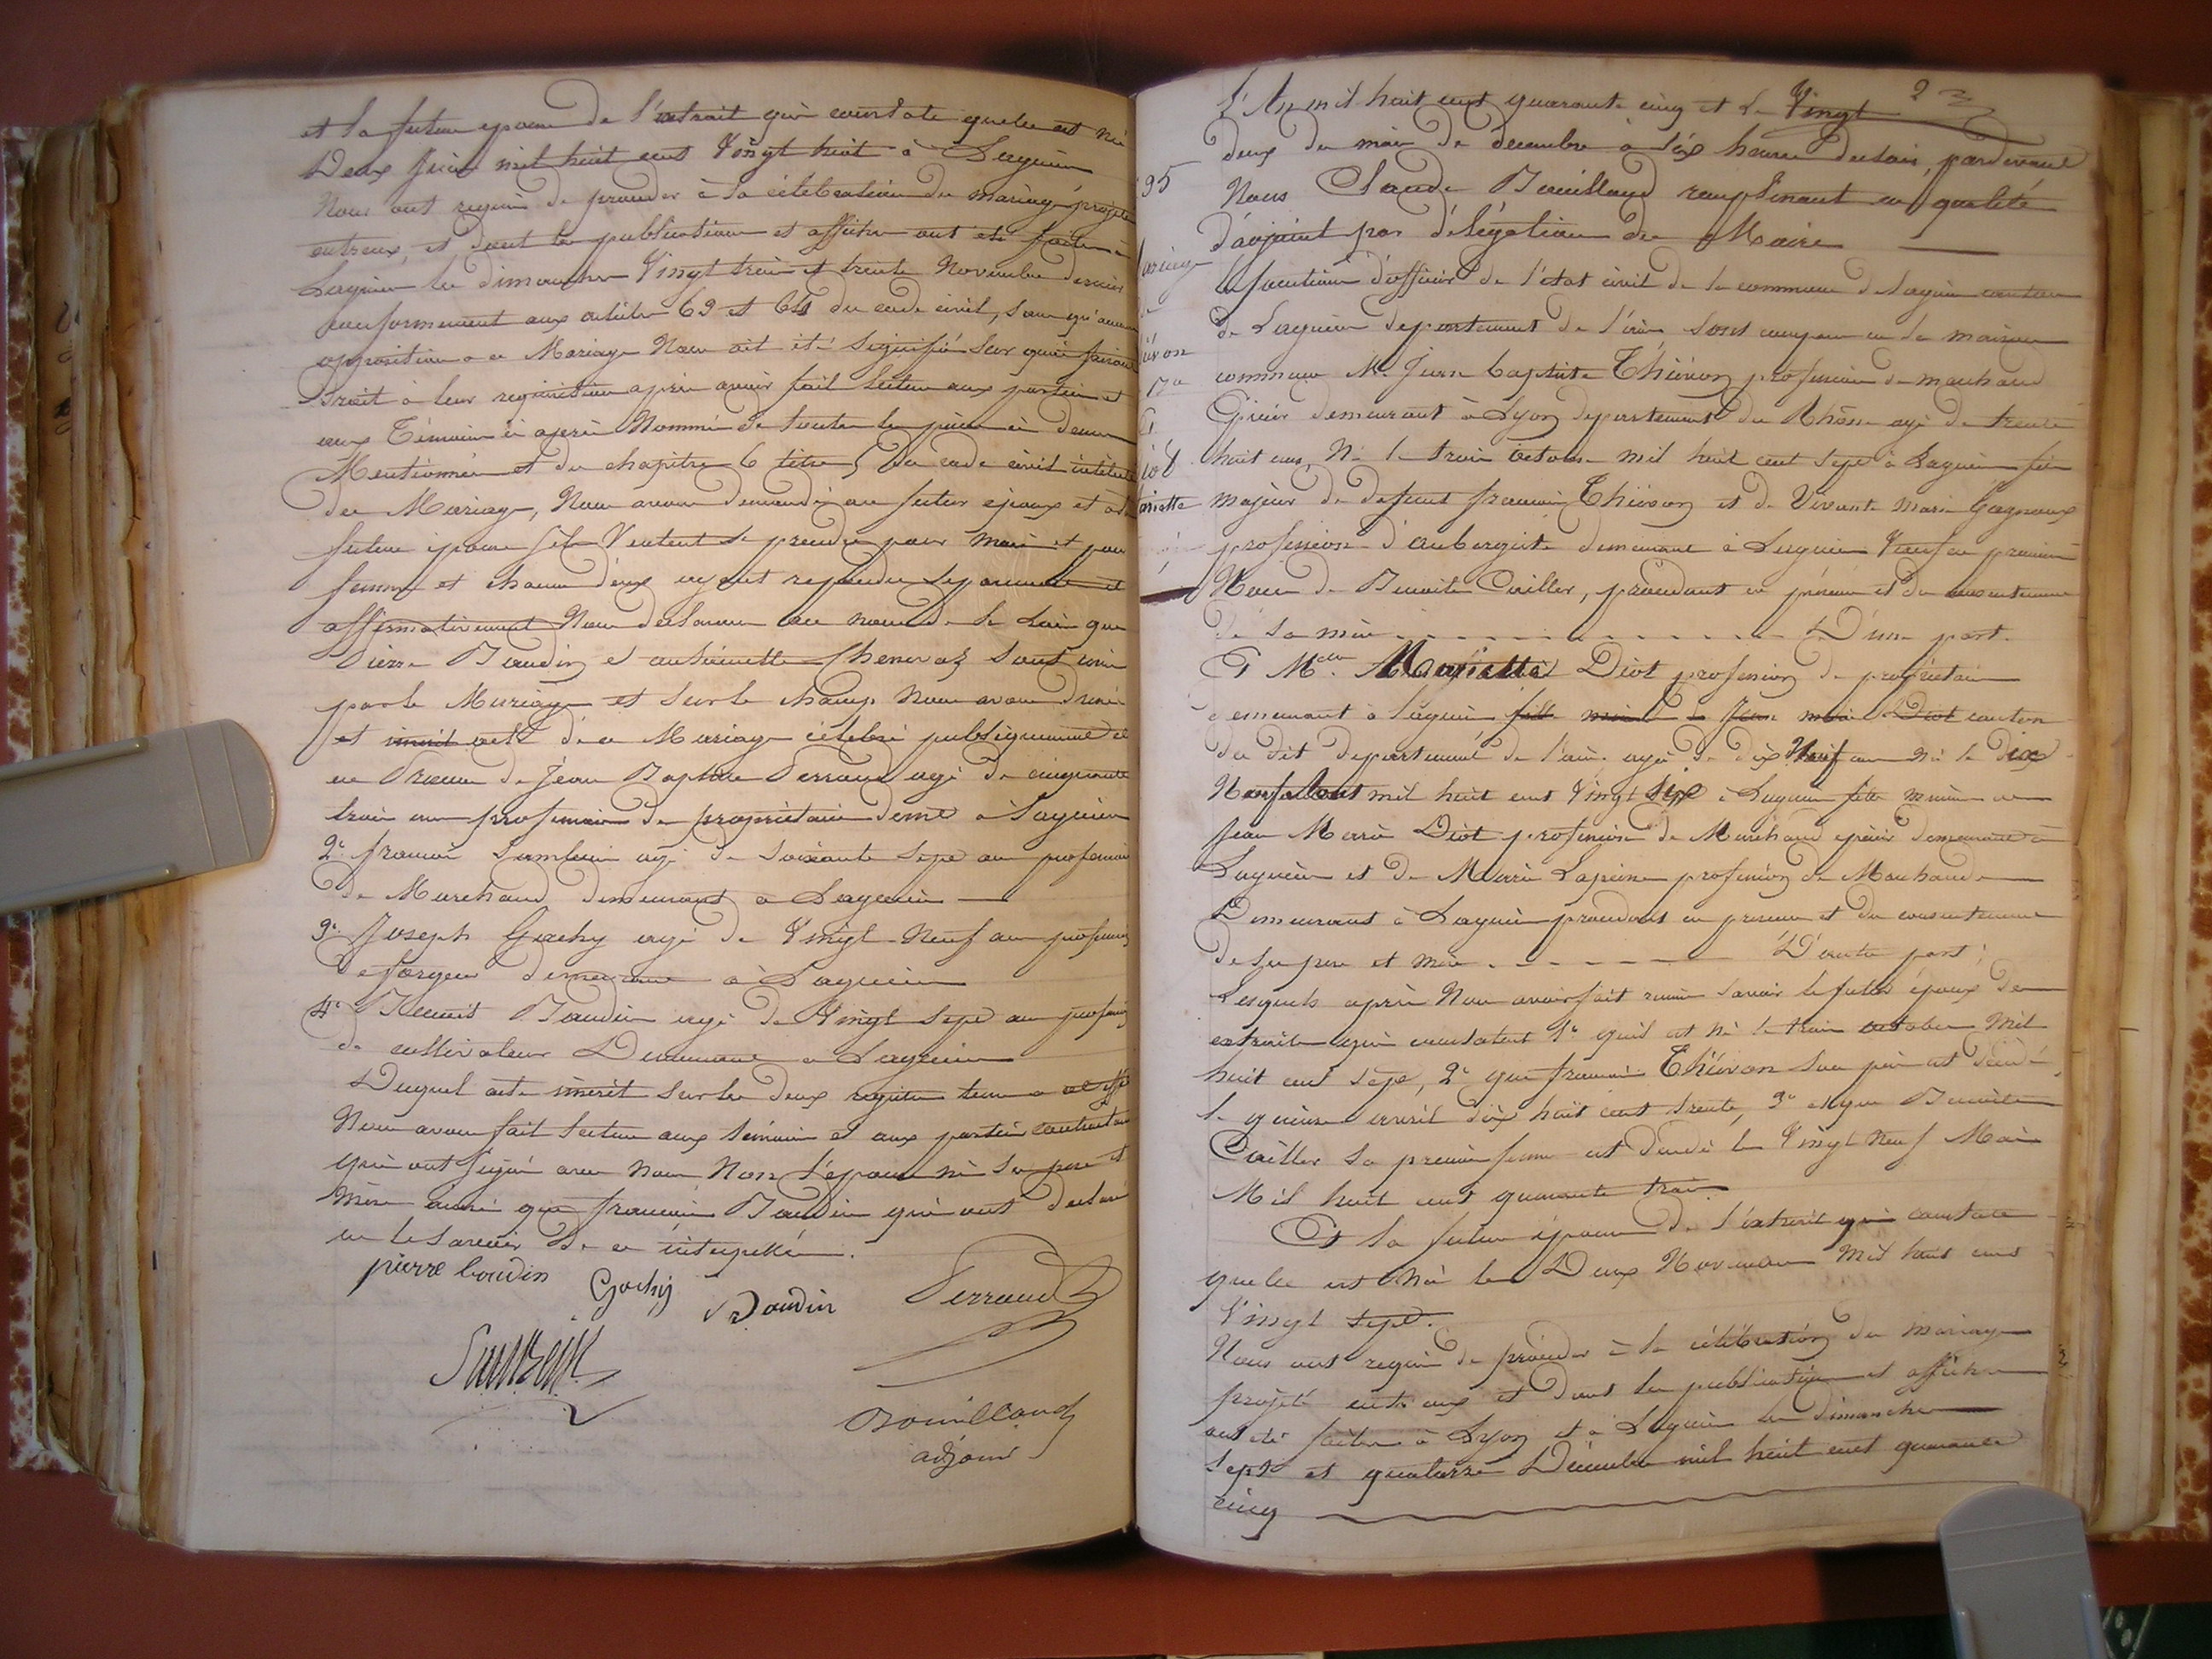 et la future épouse de l'extrait qui constate quelle est née
Deux Juin mil huit cent Vingt huit à Lagnieu
Nous ont requis de procéder à la célébration du mariage projeté
entreux, et dont les publications et affiches ont été faites à
Lagnieu les dimanches Vingt trois et trente Novembre dernier
conformement aux articles 63 et 64 du code civil, sans qu'aucune
opposition a ce Mariage Nous ait été signifié sur quoi faisant
Droit à leur requisition après avoir fait lecture aux parties et
aux Témoins ci après Nommés de toutes les pièces ci dessus
Mentionnées et du chapitre 6 titre 5 du code civil intitulé
du Mariage, Nous avons demandé au futur époux et a la
future épouse s'ils Veulent se prendre pour mari et pour
femme et chacun d'eux ayant repondu séparement et
affirmativement Nous declarons au nom de la Loi que
Pierre Baudin et antoinette Chenevaz sont unis
par le Mariage et sur le champ Nous avons dressé
et inscrit acte de ce Mariage célébré publiquement et
en Présence de Jean Baptiste Perraud agé de cinquante
trois ans profession de propriétaire demt à Lagnieu
2e françois agé de soixante sept ans profession
de Marchand demeurant a Lagnieu
3e Joseph Gachy agé de Vingt Neuf ans profession
de forgeur demeurant à Lagnieu
4e Benoit Baudin agé de Vingt sept ans profession
de cultivateur Demeurant a Lagnieu
Duquel acte inscrit sur les deux registres tenus a cet effet
Nous avons fait lecture aux témoins et aux parties contractantes
qui ont signé avec nous Non l'épouse ni ses pere et
mère ainsi que françois Baudin qui ont declaré
ne le savoir de ce interpellés.
pierre boudin Gachy Baudin Perraud
Bouillaud
adjoint
23
L'An mil huit cent quarante cinq et le Vingt
deux du mois de decembre à six heures du soir, pardevant
95
Nous Claude Bouillaud remplissant en qualité
d'adjoint par délégation du Maire
Mariage
les fonctions d'officier de l'état civil de la commune de Lagnieu canton
de
de Lagnieu departement de l'ain sont comparu en la maison
commune Mr Jean baptiste Thévon profession de marchand
Epicier demeurant à Lyon departement du Rhône agé de trente
huit ans, Né le trois octobre mil huit cent sept à Lagnieu fils
majeur de defunt francois Thévon et de Vivante marie Gagneux
profession d'aubergiste demeurant à Lagnieu Veuf en premiere
Noces de Benoite Cailler, procédant en présence et du consentement
de sa mère D'une part.
Et Melle Mariette Diot profession de propriétaire
demeurant à Lagnieu fille mineure de Jean marie Diot canton
du dit departement de l'ain agé de dix Neuf ans Né le dix
Neuf aout mil huit cent Vingt six à Lagnieu fille mineure de
Jean Marie Diot profession de Marchand epicier demeurant a
Lagnieu et de Marie Lapeine profession de Marchande
Demeurant à Lagnieu procédant en presence et du consentement
de ses pere et mère D'autre part;
Lesquels après Nous avoir fait remis savoir le futur époux des
extraits qui constatent 1e quil est né le trois octobre Mil
huit cent sept, 2e que francois Thévon son père est décédé
le quinze avril dix huit cent trente, 3e et que Benoite
Cailler sa premiere femme est décédé le Vingt Neuf Mai
Mil huit cent quarante trois
Et la future épouse de l'extrait qui constate
quelle est Née le Deux Novembre Mil huit cent
Vingt sept.
Nous ont requis de procéder à la célébration du mariage
projeté entre eux et dont les publications et affiches
ont été faites à Lyon et à Lagnieu les dimanches
sept et quatorze Décembre mil huit cent quarante
cinq